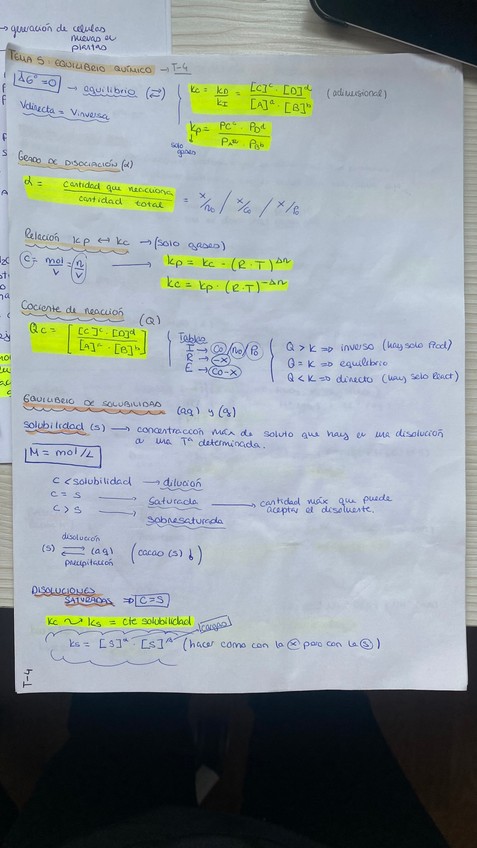 → generación de células
nuevas en
plantas
TEMA 5: EQUILIBRIO QUÍMICO → T-4
ΔG° = 0 → equilibrio (⇄)
Vdirecta = Vinversa
Kc = KD / KI = [C]^c · [D]^d / [A]^a · [B]^b (adimensional)
Kp = Pc^c · PD^d / PA^a · PB^b
solo
gases
GRADO DE DISOCIACIÓN (α)
α = cantidad que reacciona / cantidad total = x/no / x/co / x/Po
Relación Kp ↔ Kc → (solo gases)
C = mol/V = n/V → Kp = Kc · (R·T)^Δn
Kc = Kp · (R·T)^-Δn
Cociente de reacción (Q)
Qc = [ [C]^c · [D]^d / [A]^a · [B]^b ]
Tablas
I → Co / no / Po
R → -x
E → Co-x
Q > K ⇒ inverso (hay solo Prod)
Q = K ⇒ equilibrio
Q < K ⇒ directo (hay solo React)
EQUILIBRIO DE SOLUBILIDAD (aq) y (s)
Solubilidad (s) → concentración máx de soluto que hay en una disolución
a una Tª determinada.
M = mol/L
C < solubilidad → dilución
C = S → saturada → cantidad máx que puede
aceptar el disolvente.
C > S → sobresaturada
disolución
(s) ⇄ (aq) (cacao (s) ↓)
precipitación
DISOLUCIONES
SATURADAS ⇒ C=S
Kc ↝ Ks = cte solubilidad
cargas
Ks = [S]^a · [S]^b (hacer como con la x pero con la s)
T-4